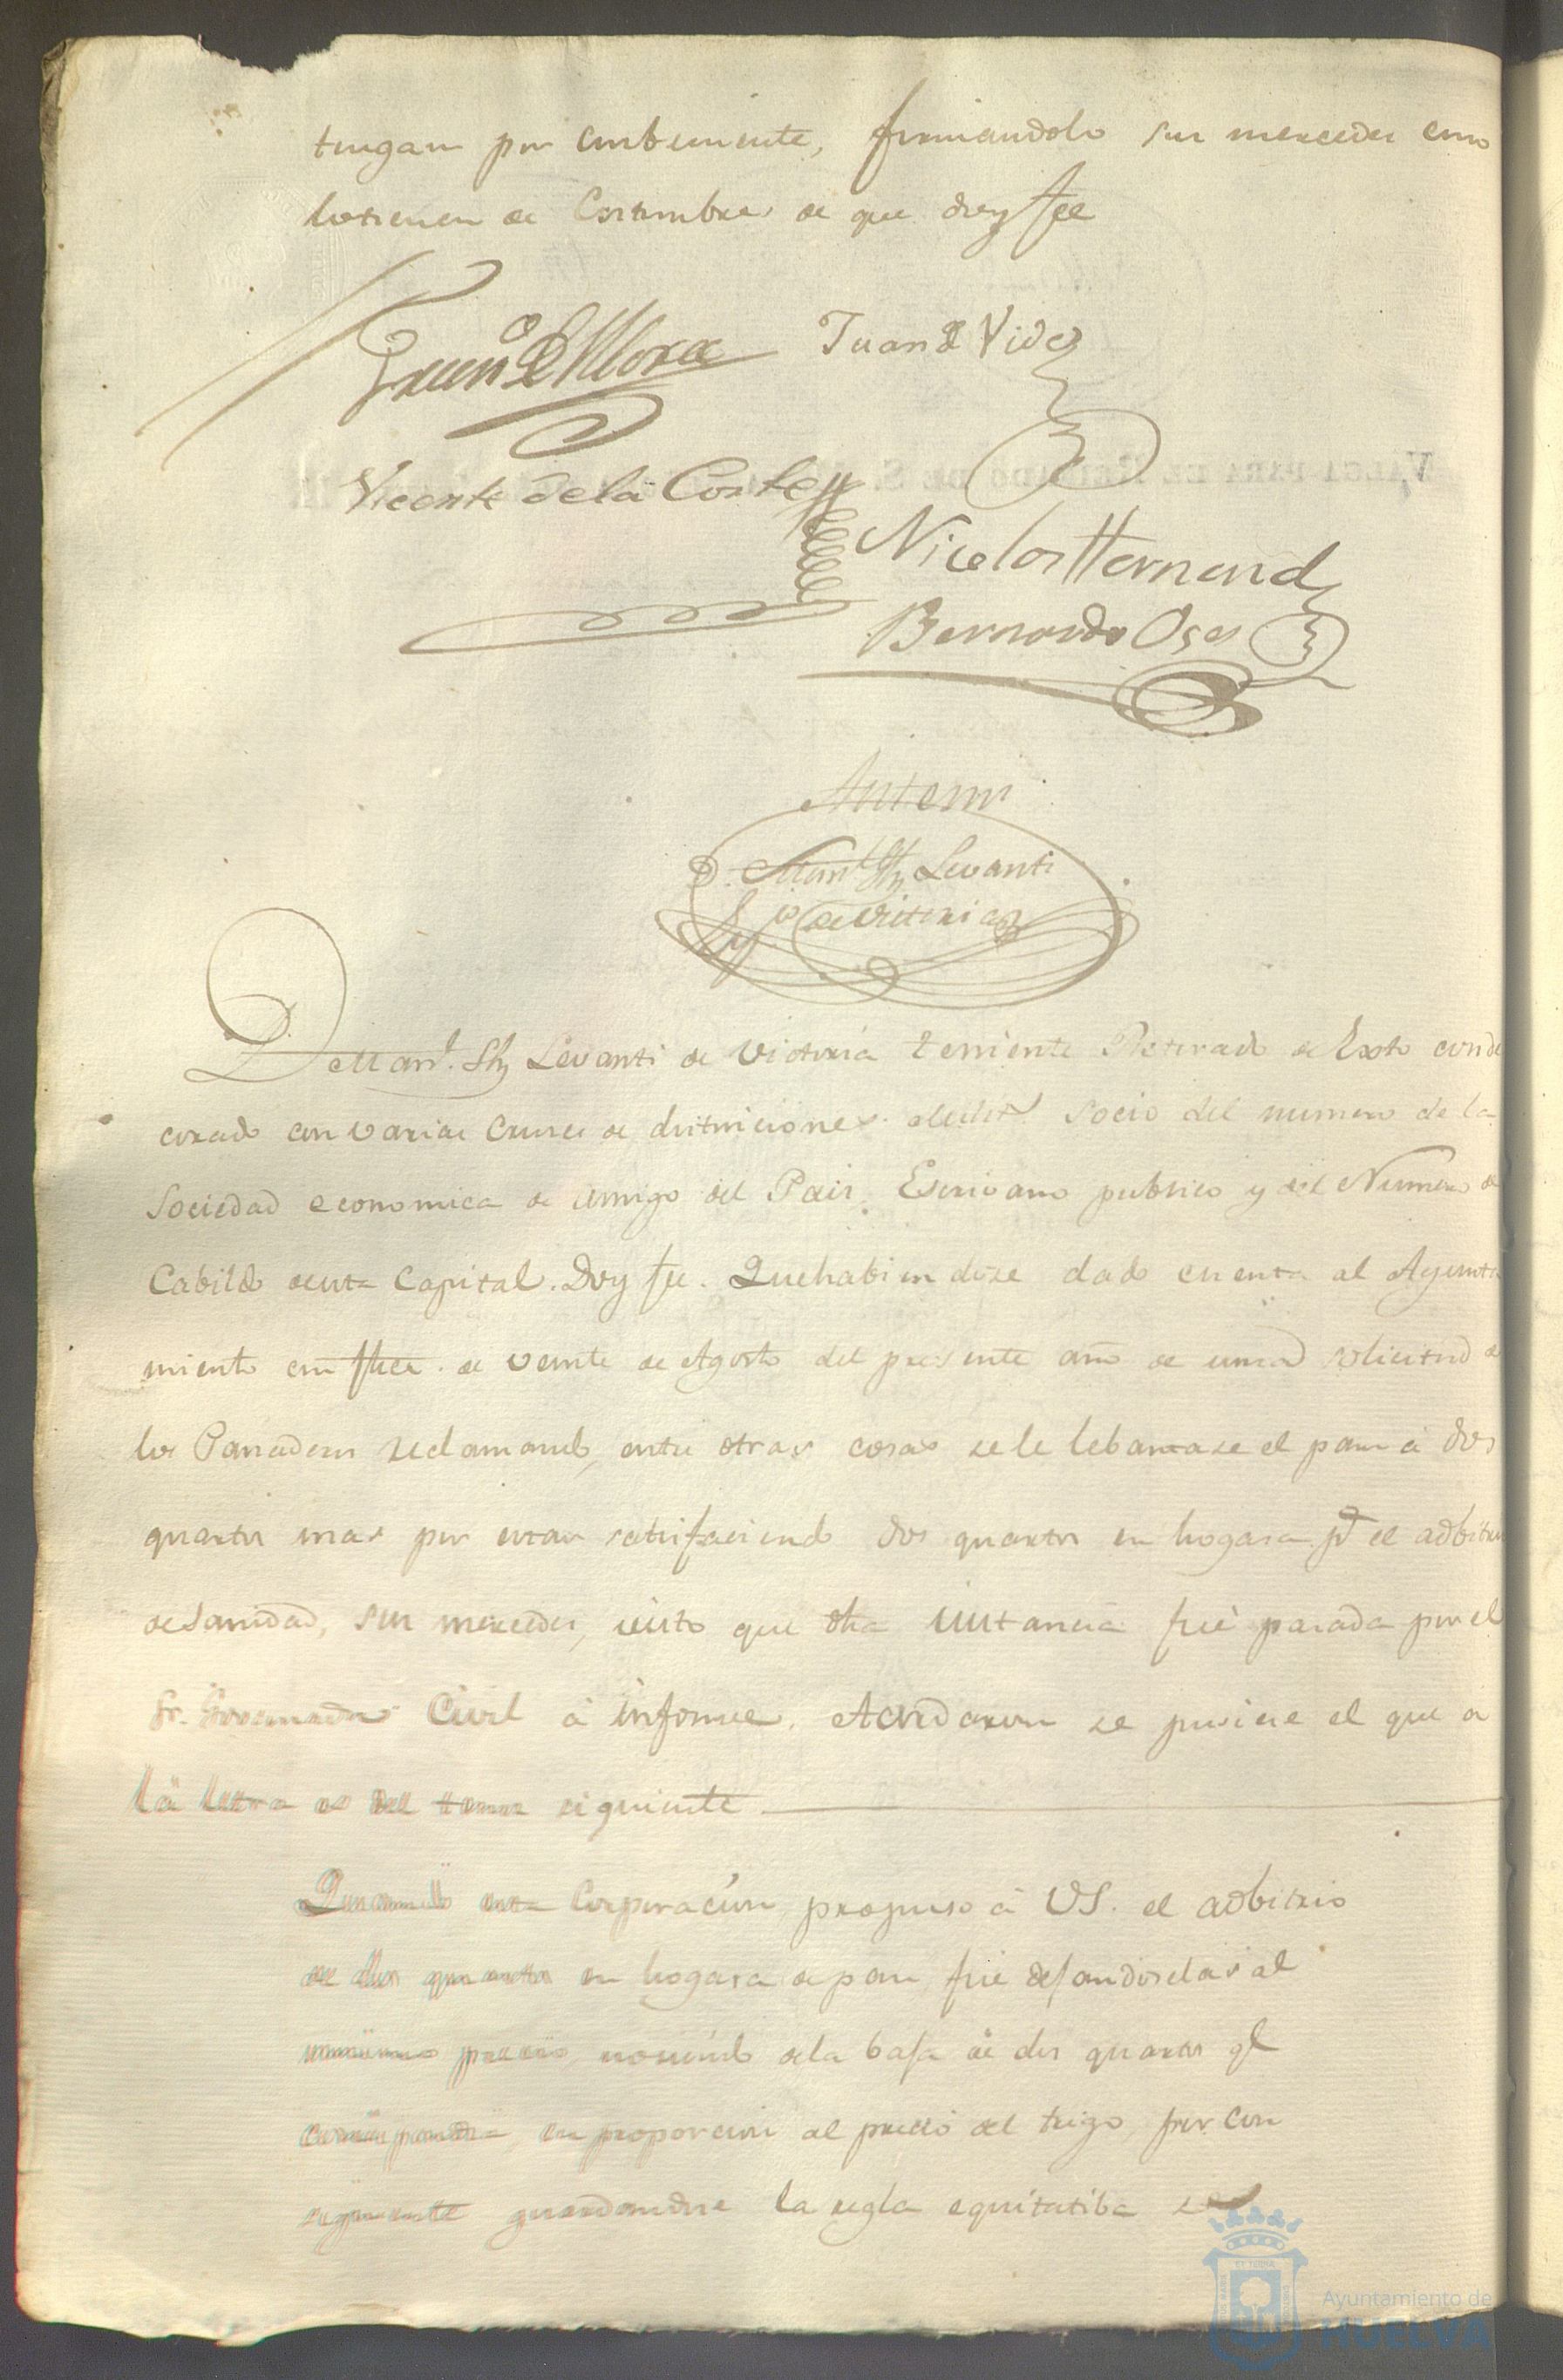 tengan por combeniente, firmandolo sus mercedes como
lo tienen de Costumbre, de que doy fee
Juan de Vides
Vicente de la Corte
Nicolas Hernand
Bernardo Oses
Antemi
Man.l Shz Levanti
de Victoria
D Man.l Shz Levanti de Victoria Teniente Retirado de Exto conde
corado con varias Cruces de distinciones socio del numero de la
Sociedad economica de Amigo del Pais, Escrivano publico y del Numero de
Cabildo de esta Capital. Doy fee. Que habiendose dado cuenta al Ayunta
miento en veinte de Agosto del presente año de una solicitud de
los Panaderos reclamando, entre otras cosas se le lebantase el pan à dos
quartos mas por estar satisfaciendo dos quartos en hogasa p.r el adbitrio
de Sanidad, sus mercedes, visto que dha instancia fue pasada por el
Sr. Governador Civil à informe. Acordaron se pusiese el que a
la letra es del tenor siguiente
Quando esta Corporacion propuso à VS. el adbitrio
de dos quartos en hogasa de pan, fue dejandoselas al
mismo precio, no siendo de la baja de dos quartos q.e
correspondia, en proporcion al precio del trigo, por con
siguiente guardandose la regla equitatiba se
Ayuntamiento de
HUELVA